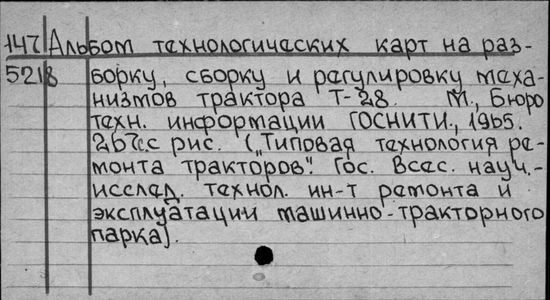 147 Альбом технологических карт на раз-
5218 борку, сборку и регулировку меха-
низмов трактора Т-28. М., Бюро
техн. информации ГОСНИТИ, 1965.
267с.с рис. („Типовая технология ре-
монта тракторов". Гос. Всес. науч.-
исслед. технол. ин-т ремонта и
эксплуатации машинно-тракторного
парка).